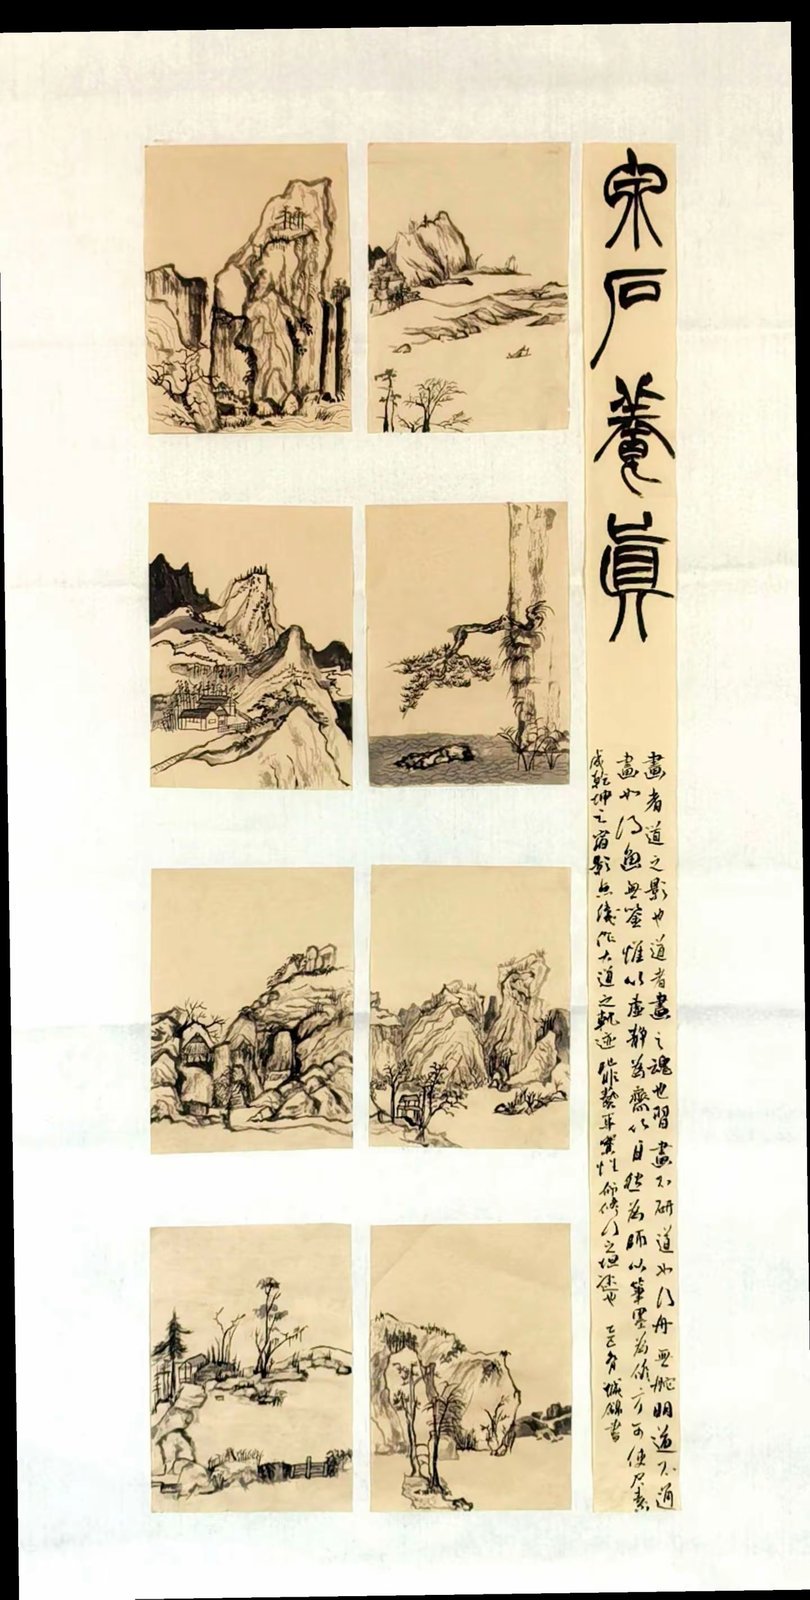 泉石養眞
畫者道之影也道者畫之魂也習畫不研道如得舟無舵明道不通
畫如得魚無筌惟以虛靜為齋以自然為師以筆墨為修方可使尺素
成乾坤之宿影點綫作大道之軌迹此非藝事實性命修行之坦途也 乙巳城錦書